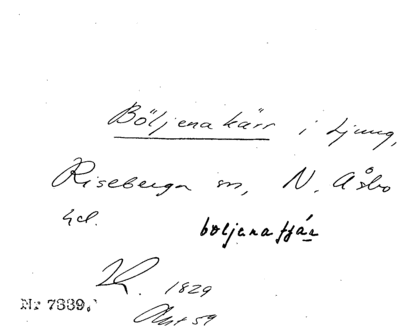 Böljenakärr i Ljung,
Riseberga sn, N. Åsbo
hd.
boljanafjár
1829
Nr 7339.
59